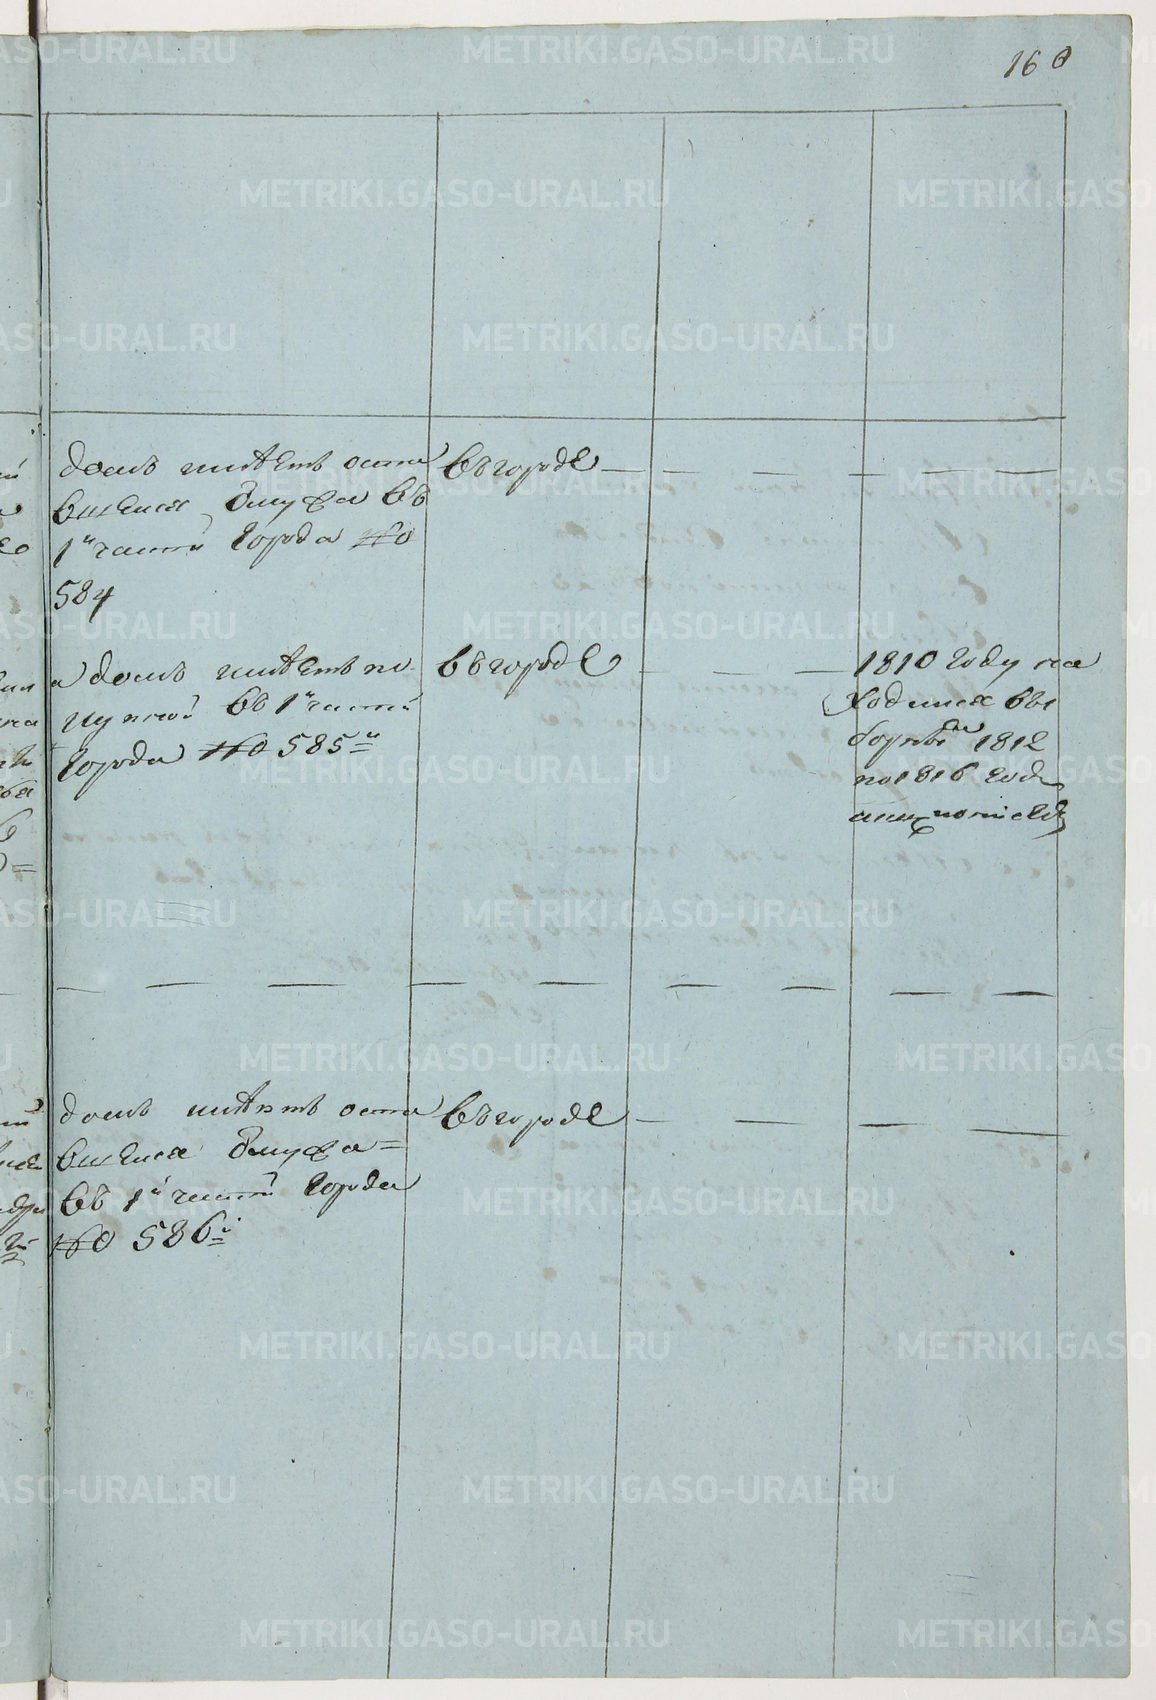 160
домъ имѣетъ оста
вшейся ѿ мужа въ
1й части города №
584
въ городе
домъ имѣетъ по
купной въ 1й части
города № 585й
въ городе
1810 году на
ходился въ
1812
по 1816 годъ
домъ имѣетъ оста
вшейся ѿ мужа =
въ 1й части города
№ 586й
въ городе
METRIKI.GASO-URAL.RU